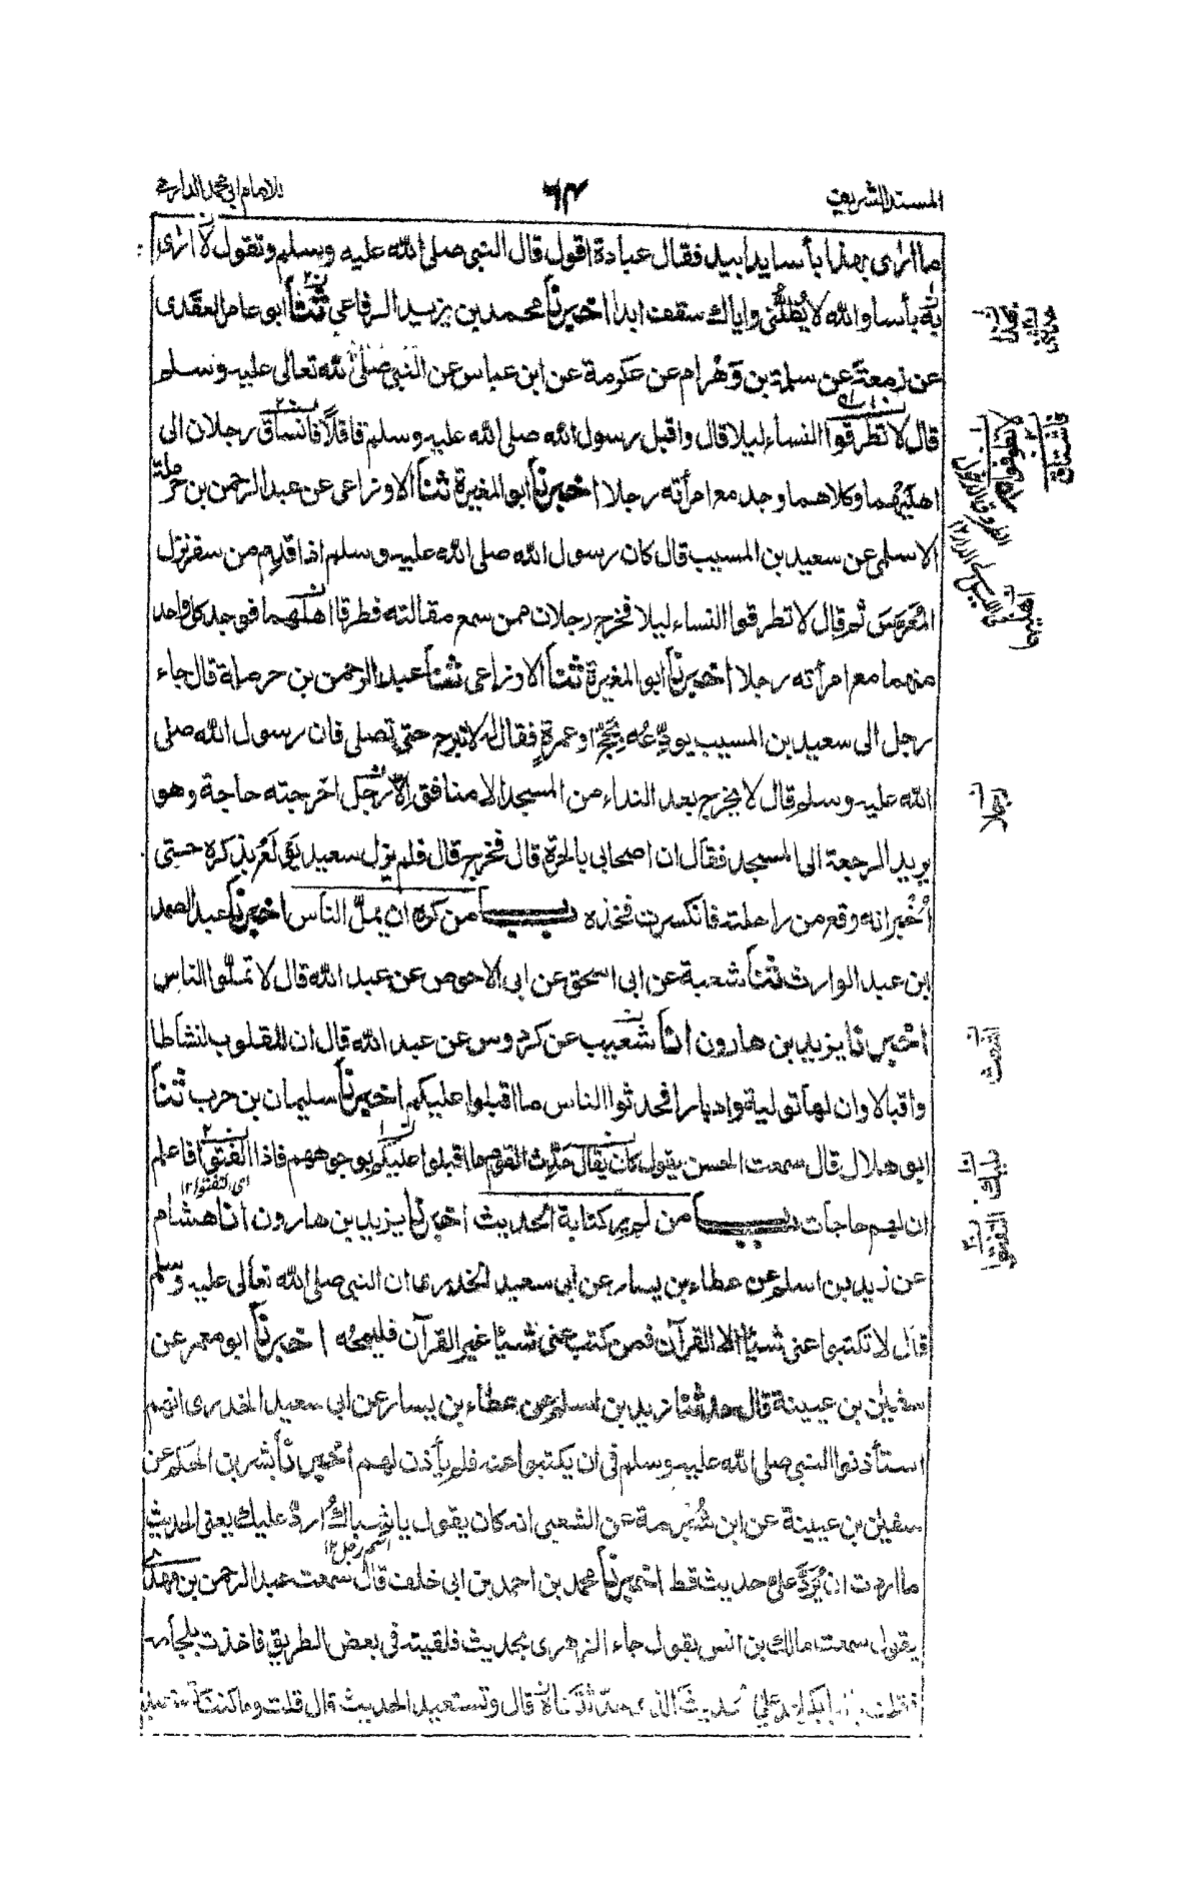 المسند الشريف
٦٤
للامام ابى محمد الدارمى
ما ارى بهذا بأسا يدا بيد فقال عبادة اقول قال النبى صلى الله عليه وسلم وتقول لا ارى
به بأسا والله لا يُظلُّنى واياك سقف ابدا اخبرنا محمد بن يزيد الرفاعى ثنا ابو عامر العقدى
عن زمعة عن سلمة بن وَهْرام عن عكرمة عن ابن عباس عن النبى صلى الله تعالى عليه وسلم
قال لا تطرقوا النساء ليلا قال واقبل رسول الله صلى الله عليه وسلم قافلًا فانساق رجلان الى
اهليهما وكلاهما وجد مع امرأته رجلا اخبرنا ابو المغيرة ثنا الاوزاعى عن عبد الرحمن بن حرملة
الاسلمى عن سعيد بن المسيب قال كان رسول الله صلى الله عليه وسلم اذا قدم من سفر نزل
المُعَرَّسَ ثم قال لا تطرقوا النساء ليلا فخرج رجلان ممن سمع مقالته فطرقا اهلهما فوجد كل واحد
منهما مع امرأته رجلا اخبرنا ابو المغيرة ثنا الاوزاعى ثنا عبد الرحمن بن حرملة قال جاء
رجل الى سعيد بن المسيب يودِّعُه بِحَجٍّ او عمرةٍ فقال له لا تبرح حتى تصلى فان رسول الله صلى
الله عليه وسلم قال لا يخرج بعد النداء من المسجد الا منافق الا رجل اخرجته حاجة وهو
يريد الرجعة الى المسجد فقال ان اصحابى بالحرة قال فخرج قال فلم يزل سعيد يَوْلَعُ بذكره حتى
اُخْبِر انه وقع من راحلته فانكسرت فخذه باب من كره ان يملّ الناس اخبرنا عبد الصمد
ابن عبد الوارث ثنا شعبة عن ابى اسحق عن ابى الاحوص عن عبد الله قال لا تملّوا الناس
اخبرنا يزيد بن هارون انا شعيب عن كردوس عن عبد الله قال ان للقلوب لنشاطا
واقبالا وان لها تولية وادبارا فحدثوا الناس ما اقبلوا عليكم اخبرنا سليمان بن حرب ثنا
ابو هلال قال سمعت الحسن يقول كان يقال حَدِّث القوم ما اقبلوا عليكم بوجوههم فاذا الفتوا فاعلم
اى التفتوا ١٢
ان لهم حاجات باب من لم ير كتابة الحديث اخبرنا يزيد بن هارون انا هشام
عن زيد بن اسلم عن عطاء بن يسار عن ابى سعيد الخدرى ان النبى صلى الله تعالى عليه وسلم
قال لا تكتبوا عنى شيئا الا القرآن فمن كتب عنى شيئا غير القرآن فليمحه اخبرنا ابو معمر عن
سفين بن عيينة قال حدثنا زيد بن اسلم عن عطاء بن يسار عن ابى سعيد الخدرى انهم
استأذنوا النبى صلى الله عليه وسلم فى ان يكتبوا عنه فلم يأذن لهم اخبرنا بشر بن الحكم عن
سفين بن عيينة عن ابن شُبرمة عن الشعبى انه كان يقول يا شباكُ اردّ عليك يعنى الحديث
اسم رجل ١٢
ما اردت ان يُرَدَّ علىّ حديث قط اخبرنا محمد بن احمد بن ابى خلف قال سمعت عبد الرحمن بن مهدى
يقول سمعت مالك بن انس يقول جاء الزهرى بحديث فلقيته فى بعض الطريق فاخذت بلجامه
فقلت يا ابا بكر اعد على الحديث الذى حدثتناه قال وتستعيد الحديث قال قلت وما كنت تستعيد
رجلا
اشعث
عليك
التفتوا